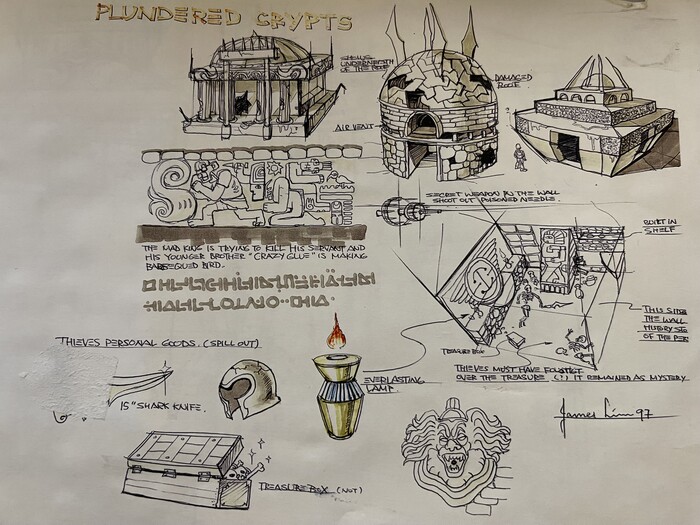 PLUNDERED CRYPTS
SKULLS
UNDERNEATH
OF THE ROOF
DAMAGED
ROOF.
AIR VENT
SECRET WEAPON IN THE WALL
SHOOT OUT POISONED NEEDLE.
BUILT IN
SHELF
THE MAD KING IS TRYING TO KILL HIS SERVANT AND
HIS YOUNGER BROTHER "CRAZY GLUE" IS MAKING
BARBEQUED BIRD.
THIS SIDE
THE WALL
HISTORY
OF THE
TREASURE BOX
THIEVES MUST HAVE FOUGHT
OVER THE TREASURE (?) IT REMAINED AS MYSTERY.
THIEVES PERSONAL GOODS. (SPILL OUT).
EVERLASTING
LAMP.
15" SHARK KNIFE.
James Lim 97
TREASURE BOX (NOT)